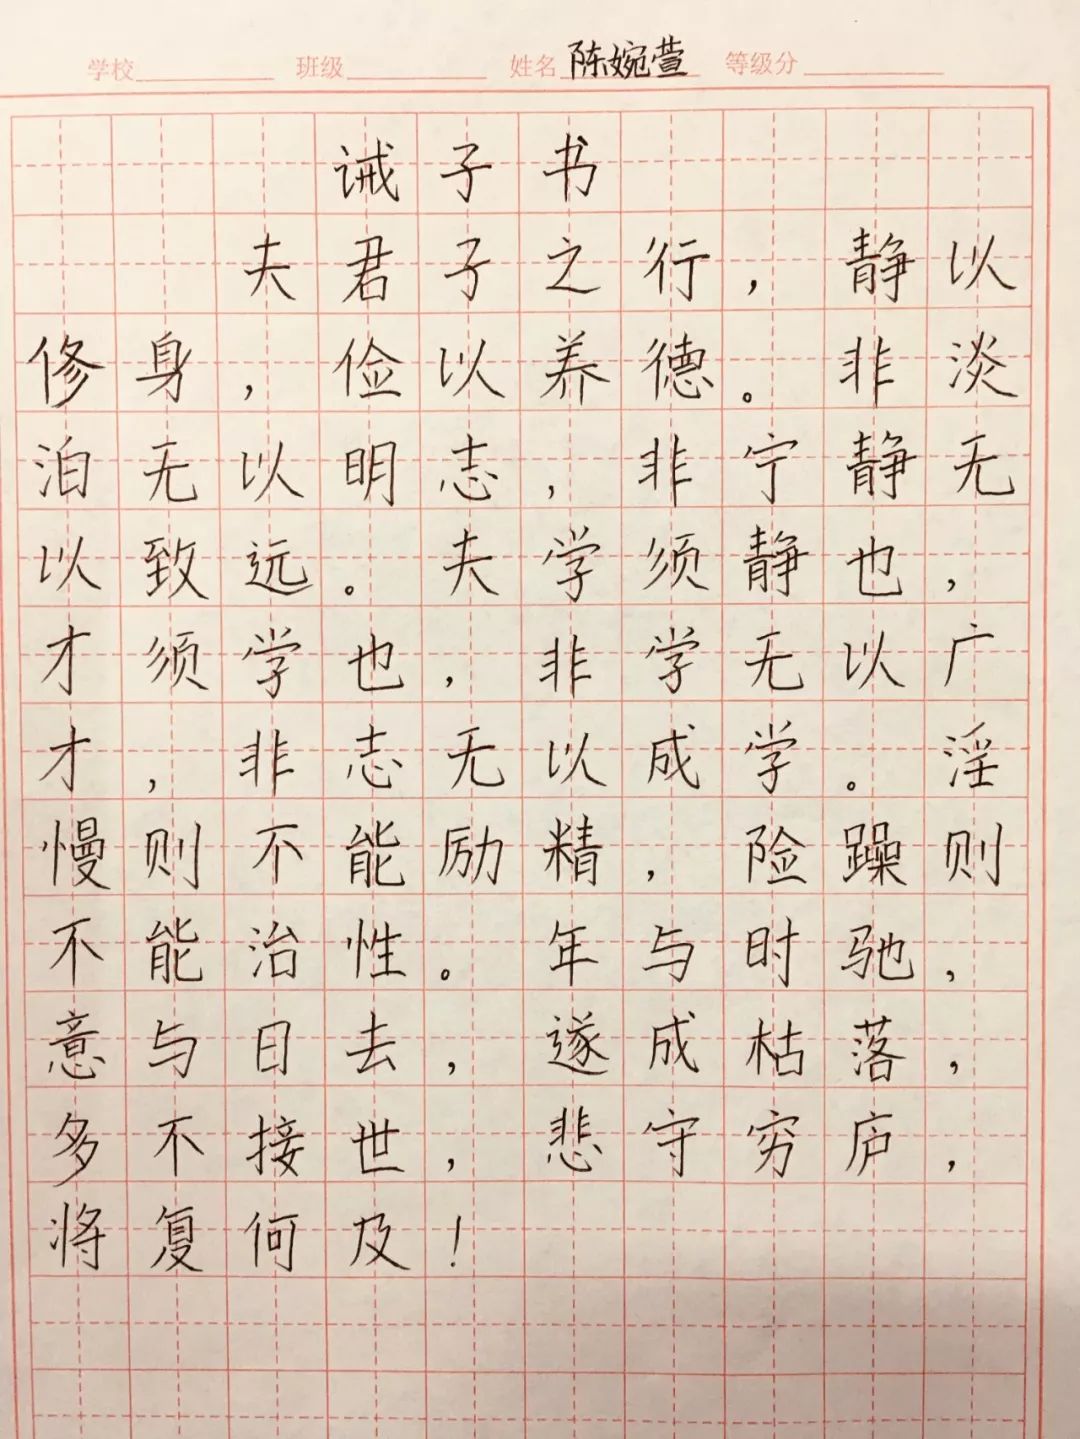 学校 班级 姓名 陈婉萱 等级分
诫子书
夫君子之行，静以
修身，俭以养德。非淡
泊无以明志，非宁静无
以致远。夫学须静也，
才须学也，非学无以广
才，非志无以成学。淫
慢则不能励精，险躁则
不能治性。年与时驰，
意与日去，遂成枯落，
多不接世，悲守穷庐，
将复何及！